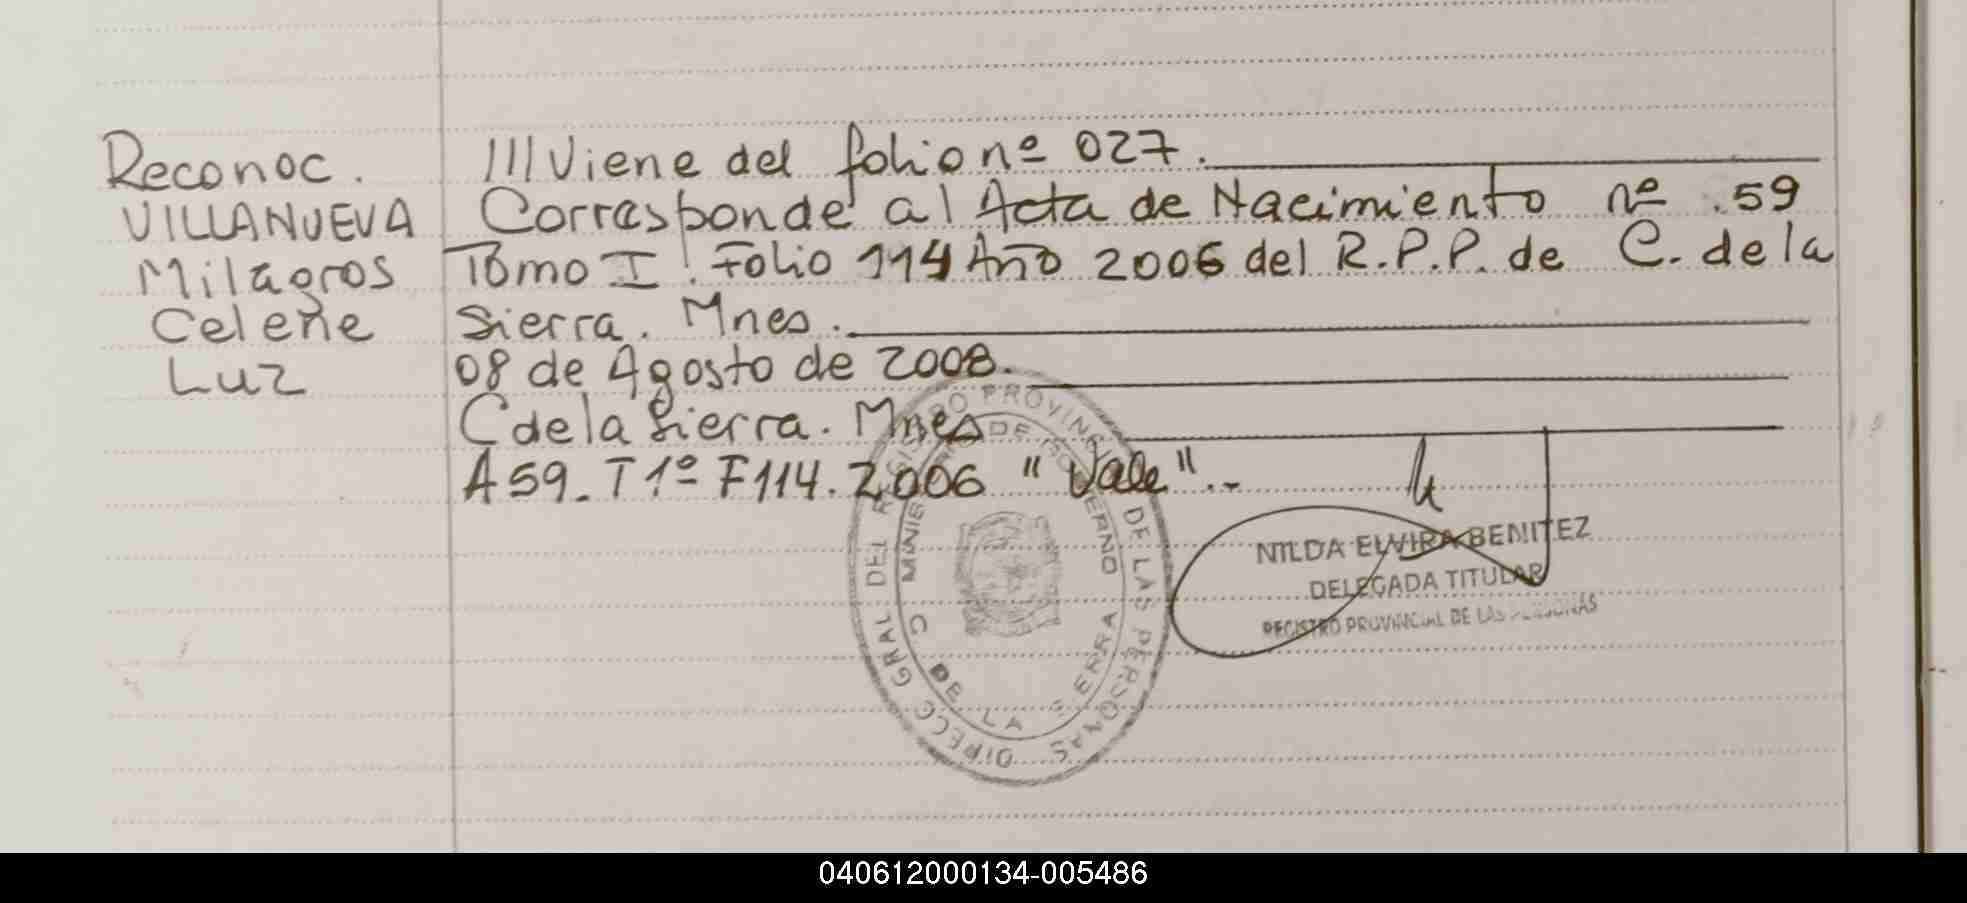 Reconoc.
VILLANUEVA
Milagros
Celene
Luz
///Viene del folio nº 027.
Corresponde al Acta de Nacimiento nº 59
Tomo I. Folio 114 Año 2006 del R.P.P. de C. de la
Sierra. Mnes.
08 de Agosto de 2008.
C de la Sierra. Mnes
A 59. T 1º F 114. 2006 "Vale"..-
DIRECC GRAL DEL REGISTRO PROVINCIAL DE LAS PERSONAS
DE GOBIERNO
C DE LA SIERRA
NILDA ELVIRA BENITEZ
DELEGADA TITULAR
REGISTRO PROVINCIAL DE LAS PERSONAS
040612000134-005486